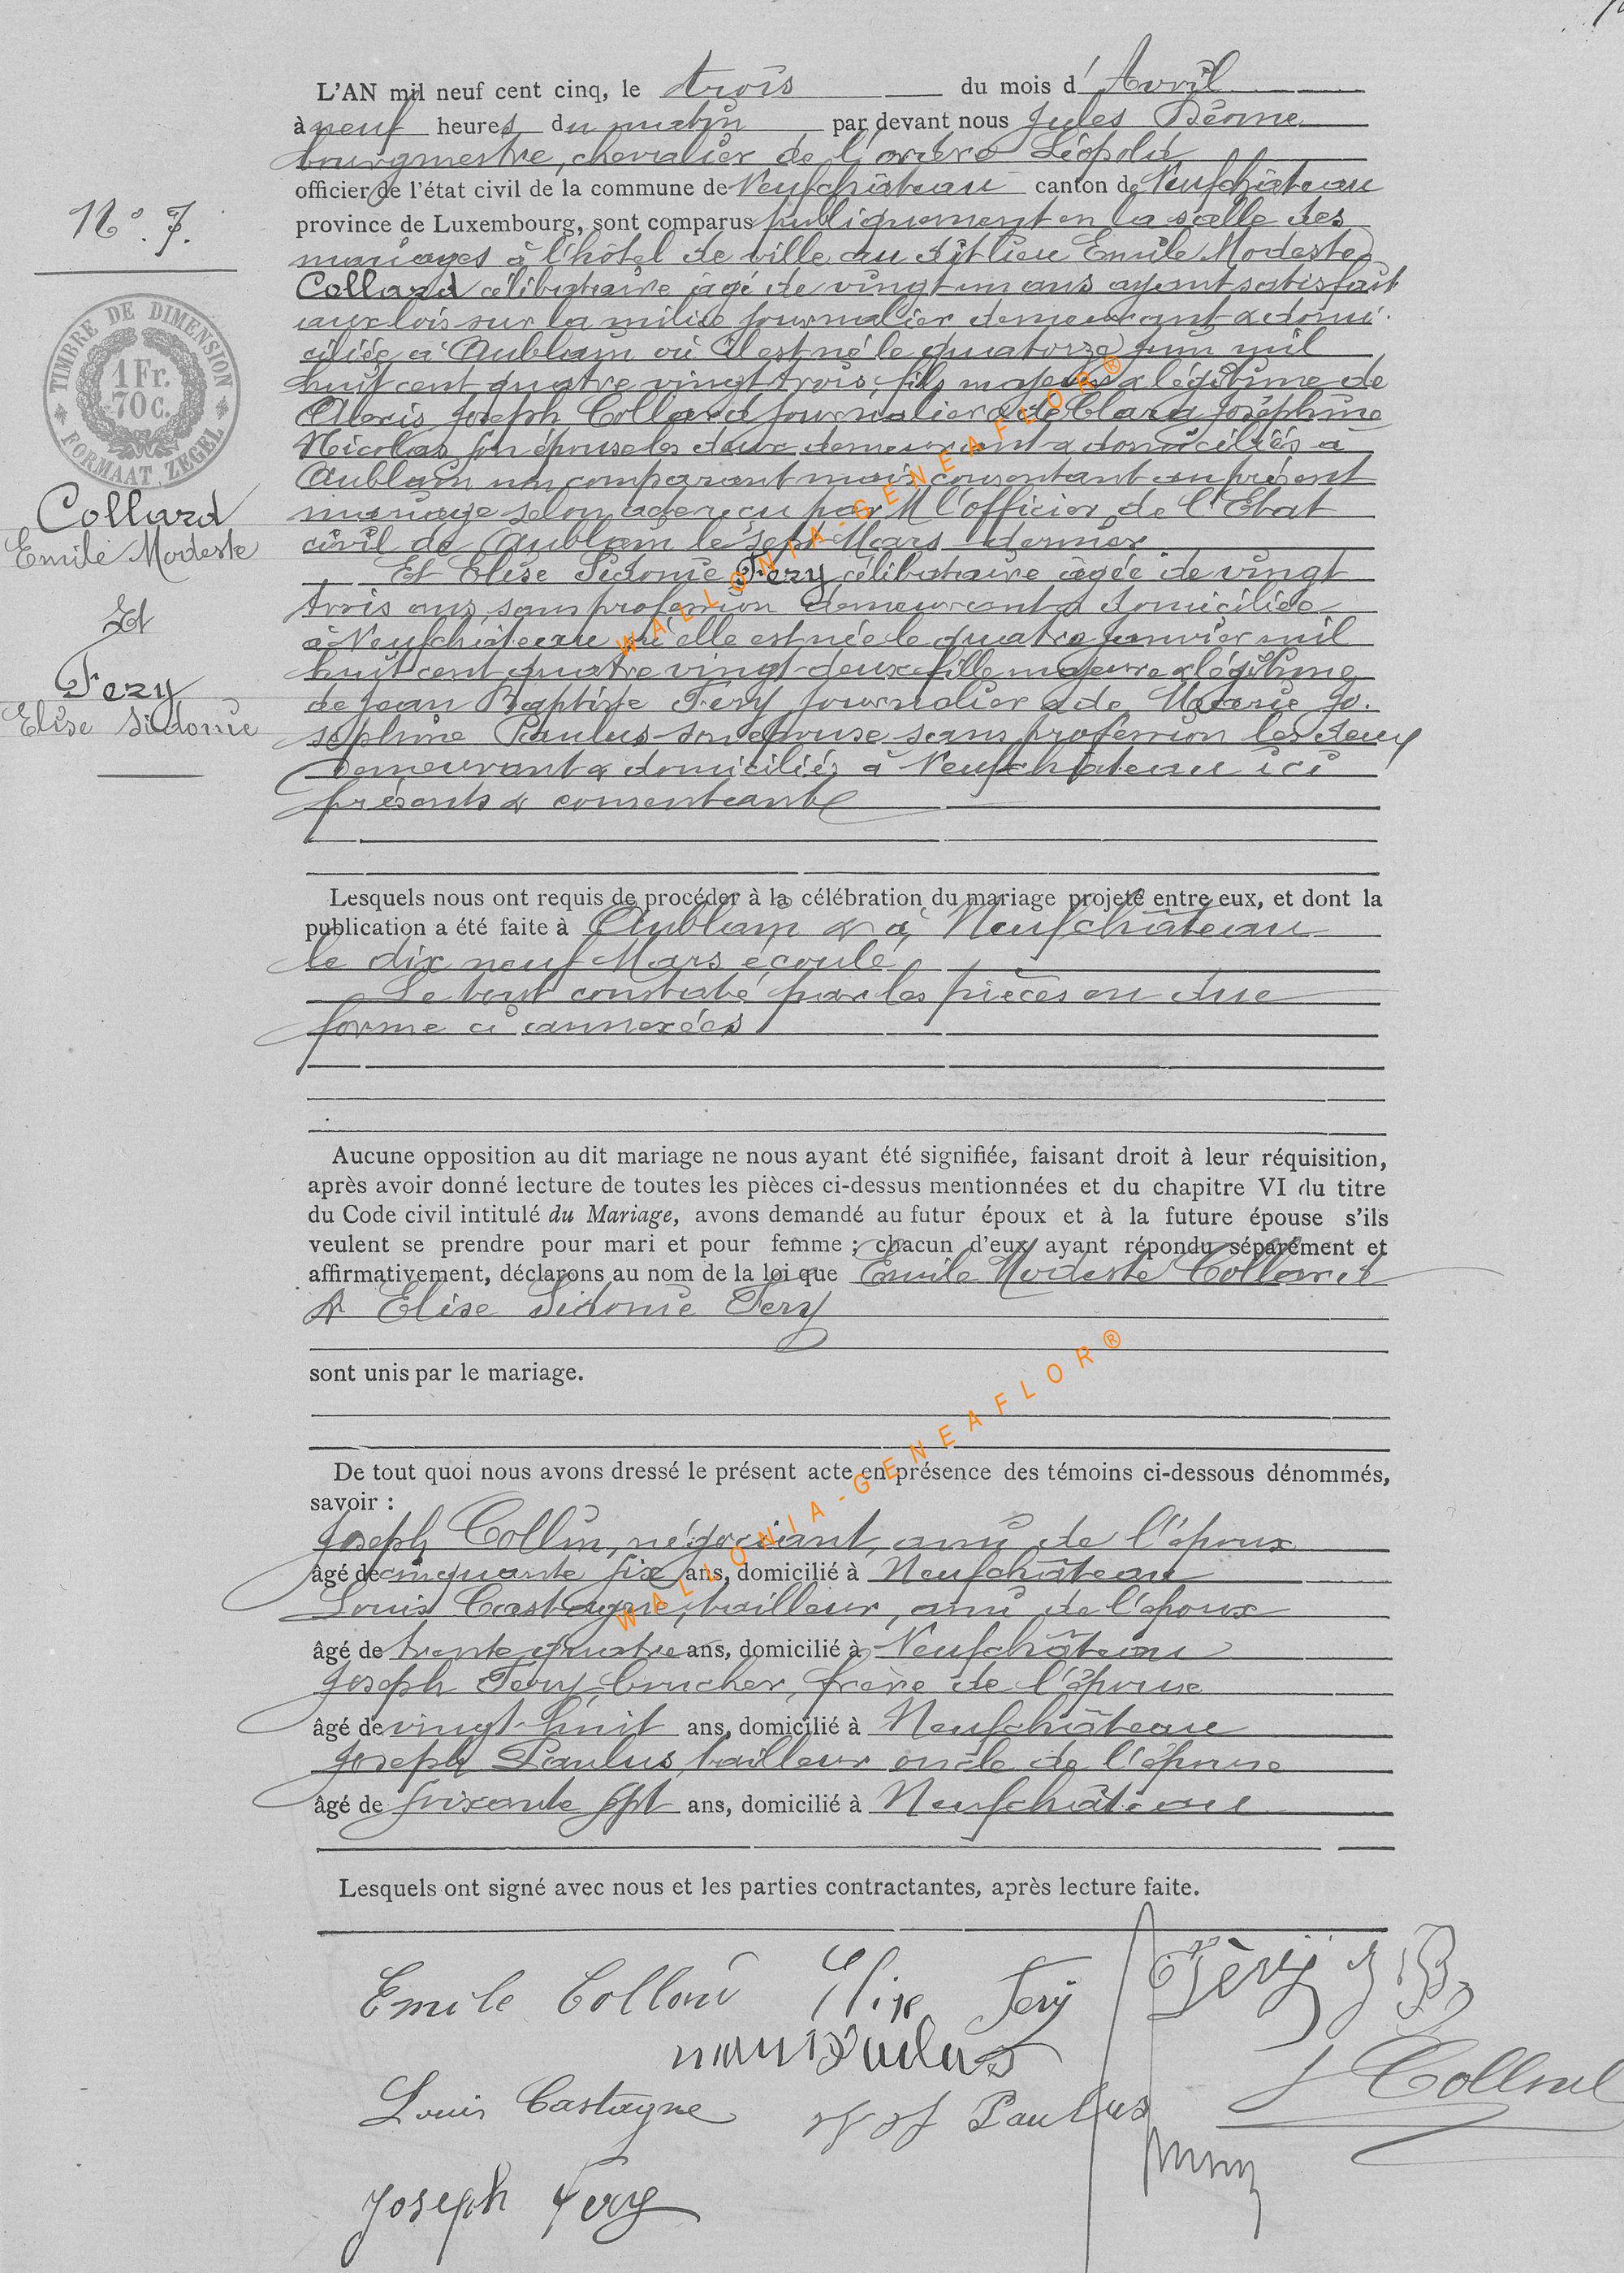 L'AN mil neuf cent cinq, le trois du mois d'Avril
à neuf heures du matin par devant nous Jules
bourgmestre, chevalier de l'ordre Léopold
officier de l'état civil de la commune de Neufchâteau canton de Neufchâteau
province de Luxembourg, sont comparus publiquement en la salle des
mariages à l'hôtel de ville au dit lieu Emile Modeste
Collard célibataire âgé de vingt un ans ayant satisfait
aux lois sur la milice journalier demeurant & domi
ciliée à Aublain où il est né le quatorze juin mil
huit cent quatre vingt trois, fils majeur & légitime de
Alexis Joseph Collard journalier & de Clara Joséphine
Nicolas son épouse les deux demeurant & domiciliés à
Aublain non comparant mais consentant au présent
mariage selon acte reçu par M l'officier de l'Etat
civil de Aublain le sept Mars dernier
Et Elise Sidonie Fery célibataire âgée de vingt
trois ans, sans profession demeurant & domiciliée
à Neufchâteau où elle est née le quatre janvier mil
huit cent quatre vingt-deux fille majeure & légitime
de Jean Baptiste Féry journalier & de Marie Jo.
séphine Paulus son épouse sans profession les deux
demeurant & domiciliés à Neufchâteau ici
présents & consentants
Lesquels nous ont requis de procéder à la célébration du mariage projeté entre eux, et dont la
publication a été faite à Aublain & à Neufchâteau
le dix neuf Mars écoulé
Le tout constaté par les pièces en due
forme ci annexées
Aucune opposition au dit mariage ne nous ayant été signifiée, faisant droit à leur réquisition,
après avoir donné lecture de toutes les pièces ci-dessus mentionnées et du chapitre VI du titre
du Code civil intitulé du Mariage, avons demandé au futur époux et à la future épouse s'ils
veulent se prendre pour mari et pour femme ; chacun d'eux ayant répondu séparément et
affirmativement, déclarons au nom de la loi que Emile Modeste Collard
& Elise Sidonie Fery
sont unis par le mariage.
De tout quoi nous avons dressé le présent acte en présence des témoins ci-dessous dénommés,
savoir :
Joseph Collin, négociant, ami de l'époux
âgé de cinquante six ans, domicilié à Neufchâteau
Louis Castagne, tailleur, ami de l'époux
âgé de trente quatre ans, domicilié à Neufchâteau
Joseph Féry boucher, frère de l'épouse
âgé de vingt-huit ans, domicilié à Neufchâteau
Joseph Paulus, tailleur oncle de l'épouse
âgé de soixante sept ans, domicilié à Neufchâteau
Lesquels ont signé avec nous et les parties contractantes, après lecture faite.
Emile Collard Elise Fery Féry J B
Paulus
Louis Castagne Paulus
Joseph Fery
N°. 7.
TIMBRE DE DIMENSION
1 Fr.
70 c.
FORMAAT ZEGEL
Collard
Emile Modeste
Et
Fery
Elise Sidonie
WALLONIA-GENEAFLOR®
WALLONIA-GENEAFLOR®